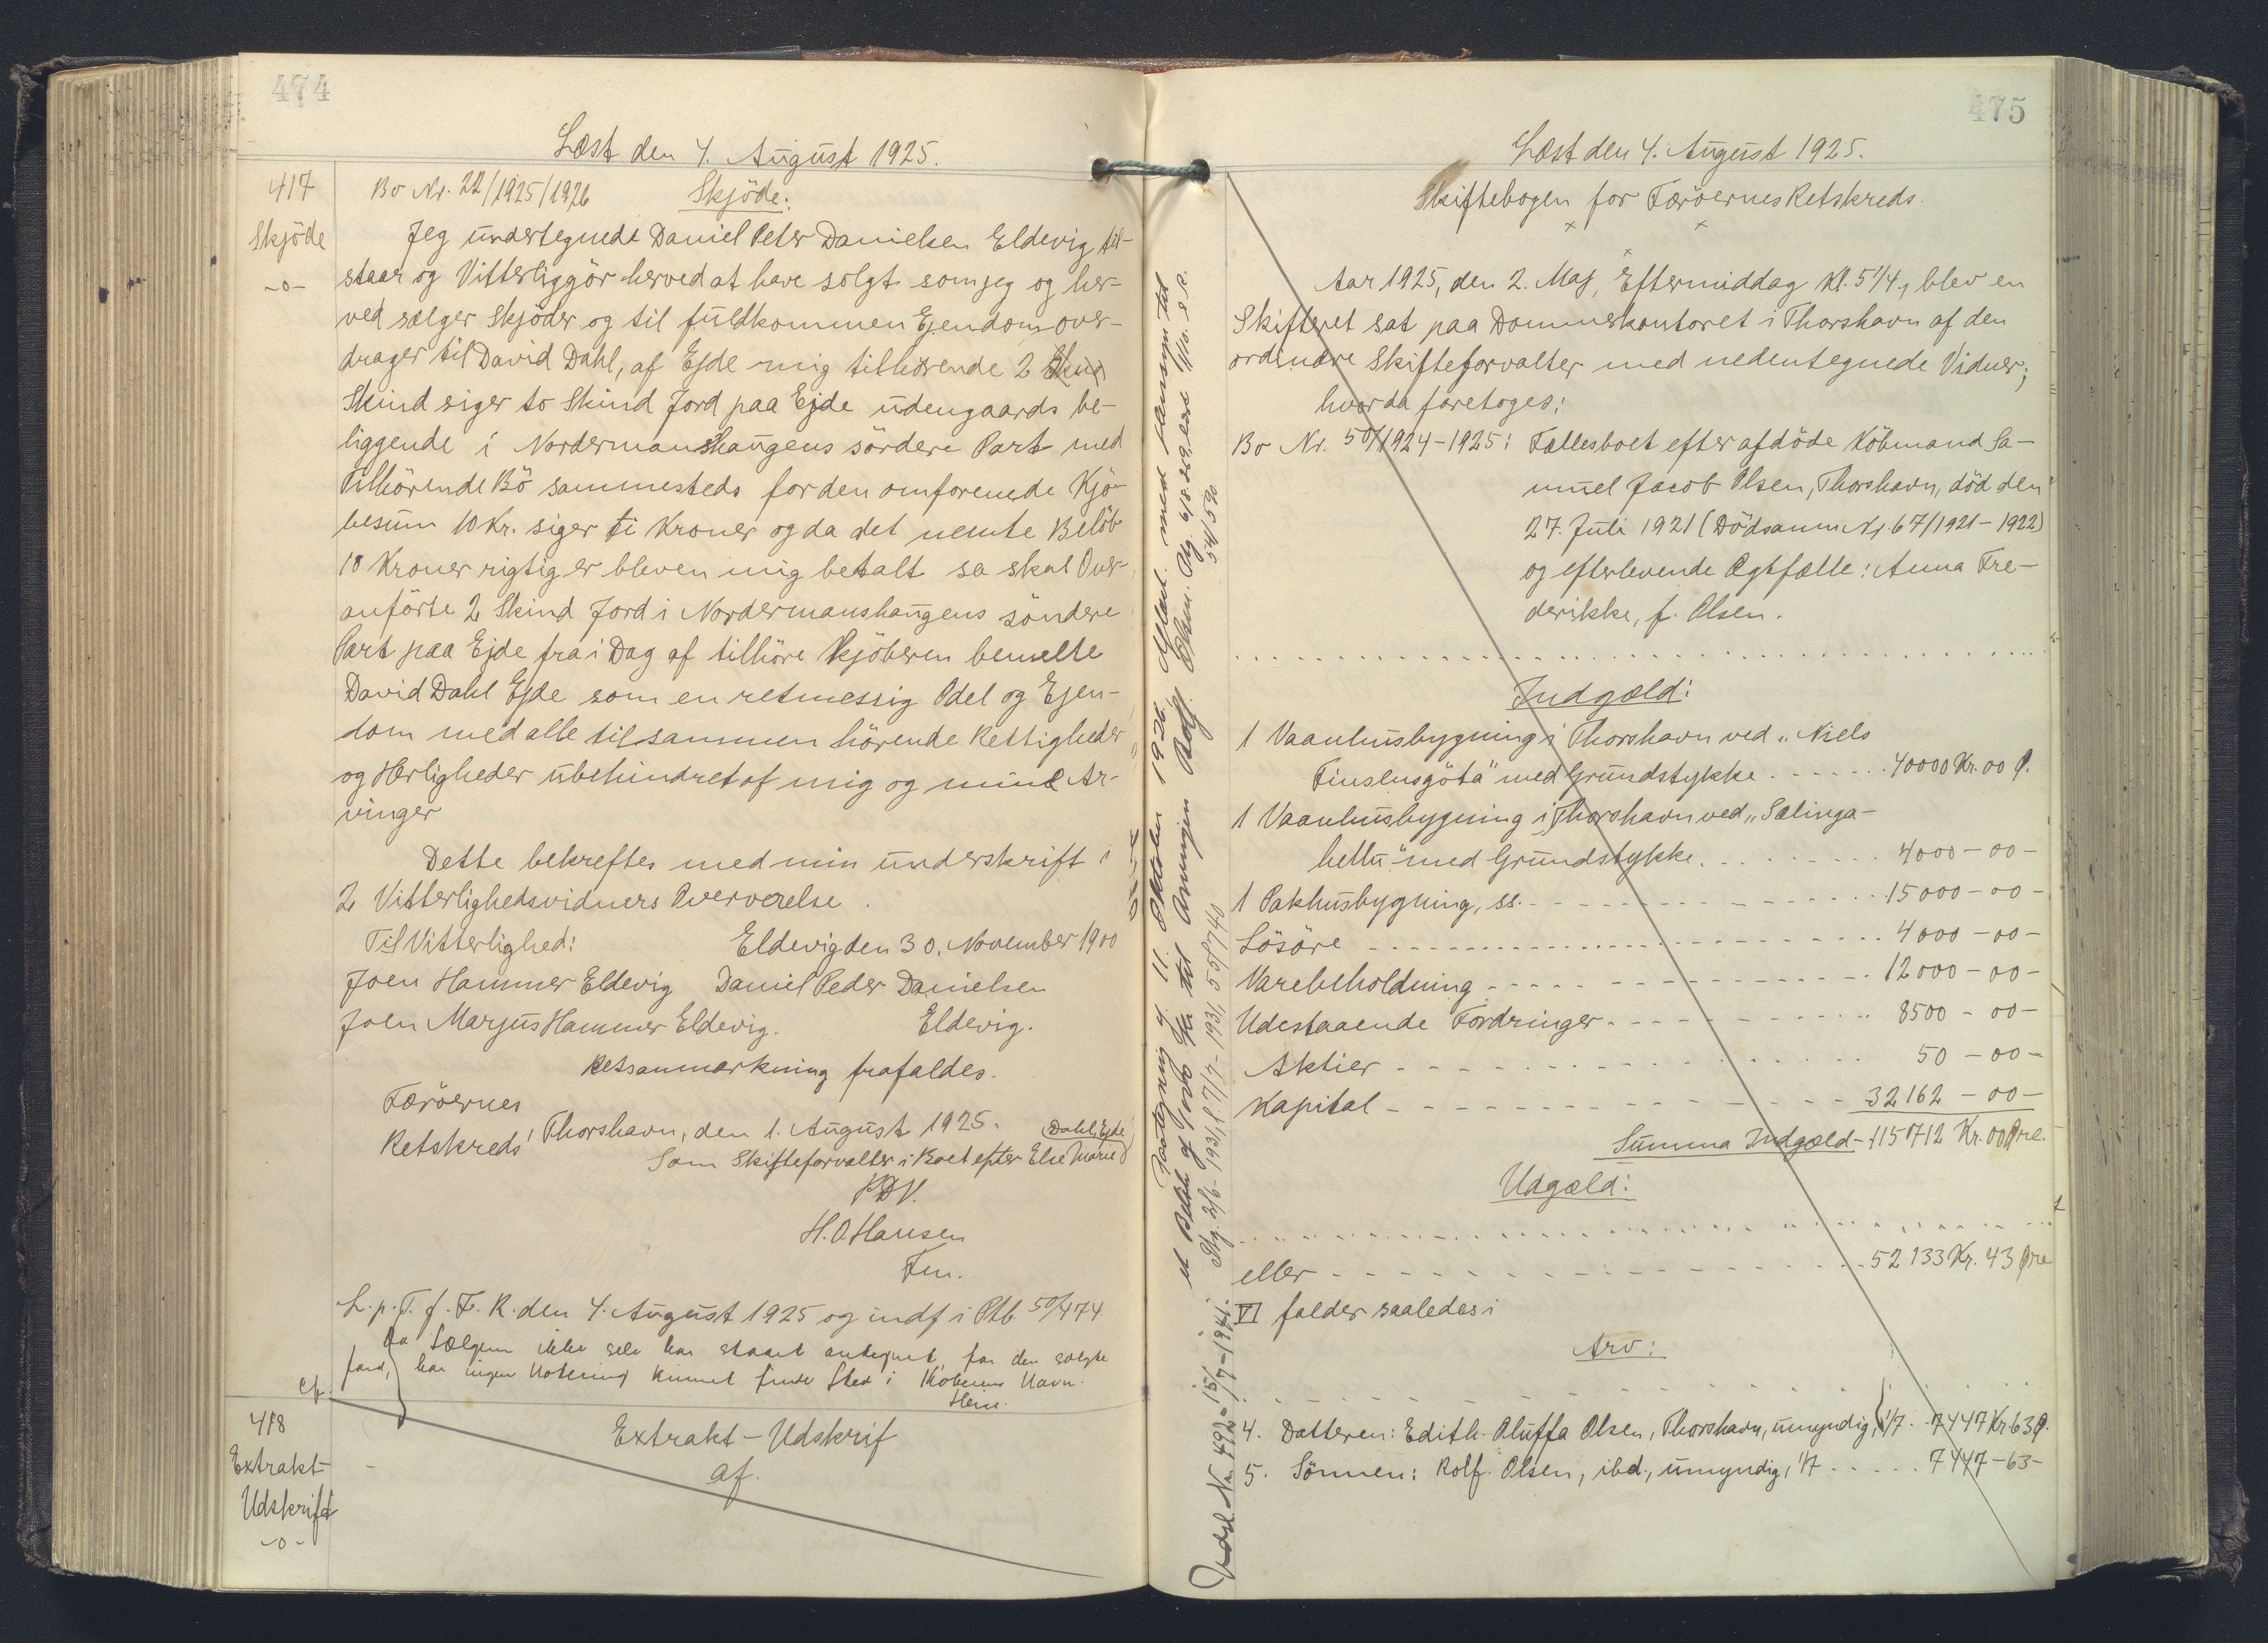 474
Læst den 4. August 1925.
417
Skjöde
-o-
Bo Nr. 22/1925/1926 Skjöde.
Jeg undertegnede Daniel Peter Danielsen Eldevig til-
staar og Vitterliggör herved at have solgt som jeg og her-
ved sælger Skjöder og til fuldkommen Ejendom over-
drager til David Dahl, af Ejde mig tilhörende 2
Skind siger to Skind Jord paa Ejde udengaards be-
liggende i Nordermanshaugens sördere Part med
Tilhörende Bö sammesteds for den omforenede Kjö-
besum 10 Kr. siger ti Kroner og da det nemte Belöb
10 Kroner rigtig er bleven mig betalt sa skal Over-
anförte 2 Skind Jord i Nordermanshaugens söndere
Part paa Ejde fra i Dag af tilhöre Kjöberen bemelte
David Dahl Ejde som en retmessig Odel og Ejen-
dom med alle til sammen hörende Rettigheder
og Herligheder ubehindret af mig og mine Ar-
vinger
Dette bekreftes med min underskrift i
2 Vitterlighedsvidners Oververelse.
Til Vitterlighed: Eldevig den 30. November 1900
Joen Hammer Eldevig Daniel Peder Danielsen
Joen Marjus Hammer Eldevig. Eldevig.
Retsanmærkning frafaldes.
Færöernes
Retskreds' Thorshavn, den 1. August 1925. Dahl, Ejde
Som Skifteforvalter i Boet efter Else Marie
P.D.V.
H.O. Hansen
Fm.
L. p. T. f. F. R. den 4. August 1925 og indf i Ptb. 50/474.
Da Sælgeren ikke selv har staaet antegnet for den solgte
Jord, har ingen Notering kunnet finde Sted i Köberens Navn.
418
Extrakt-
Udskrift
-o-
Extrakt-Udskrif
af.
475
Læst den 4. August 1925.
Skiftebogen for Færöernes Retskreds.
x x x
Aar 1925, den 2. Maj, Eftermiddag Kl. 5 1/4, blev en
Skifteret sat paa Dommerkontoret i Thorshavn af den
ordinære Skifteforvalter med nedentegnede Vidner;
hvorda foretoges:
Bo Nr. 50/1924-1925: Fællesboet efter afdöde Köbmand Sa-
muel Jacob Olsen, Thorshavn, död den
27. Juli 1921 (Dödsanm Nr. 67/1921-1922)
og efterlevende Ægtfælle: Anna Fre-
derikke, f. Olsen.
Indgæld:
1 Vaanhusbygning i Thorshavn ved „Niels
Finsensgöta" med Grundstykke . . . . . . 40000 Kr. 00 Ø.
1 Vaanhusbygning i Thorshavn ved „Sælinga-
hellu" med Grundstykke. . . . . . . . 4000 - 00 -
1 Pakhusbygning, ss. - - - - - - 15000 - 00 -
Lösöre - - - - - - 4000 - 00 -
Varebeholdning - - - - - - 12000 - 00 -
Udestaaende Fordringer - - - - - - 8500 - 00 -
Aktier - - - - - - 50 - 00 -
Kapital - - - - - - 32162 - 00 -
Summa Indgæld - 115712 Kr. 00 Øre.
Udgæld:
eller - - - - - - 52133 Kr. 43 Øre
VI falder saaledes i
Arv:
4. Datteren: Edith Oluffa Olsen, Thorshavn, umyndig, 1/7 . . 7447 Kr. 63 Ø.
5. Sönnen: Rolf Olsen, ibd., umyndig, 1/7 . . . . . 7447 - 63 -